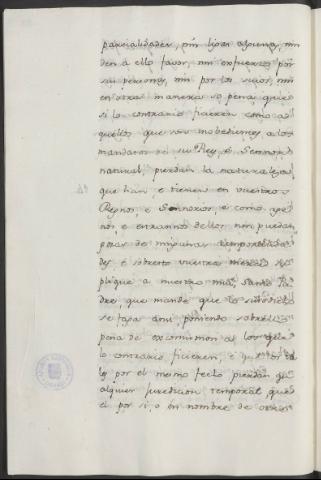 parcialidades, nin ligas algunas, nin
den à ello favor, nin esfuerzo por
sus personas, nin por los suios, nin
en otra manera so pena que
si lo contrario ficieren como a
quellos que son inobedientes a los
mandatos de su Rey, è Sennor
natural, pierdan la naturaleza,
que han, è tienen en vuestros
Reynos, è Sennorios, è como age
nos, e estrannos dellos, non puedan
gozar de ningunas temporalida
des è sobresto vuestra merced su
plique a nuestro mui Santo Pa
dre, que mande que lo susodicho
se faga ansi, poniendo sobrello
pena de excomunion a los que
lo contrario ficieren, è que
por el mesmo fecho pierdan qua
alquier juredicion temporal, que
el por si, o en nombre de otros